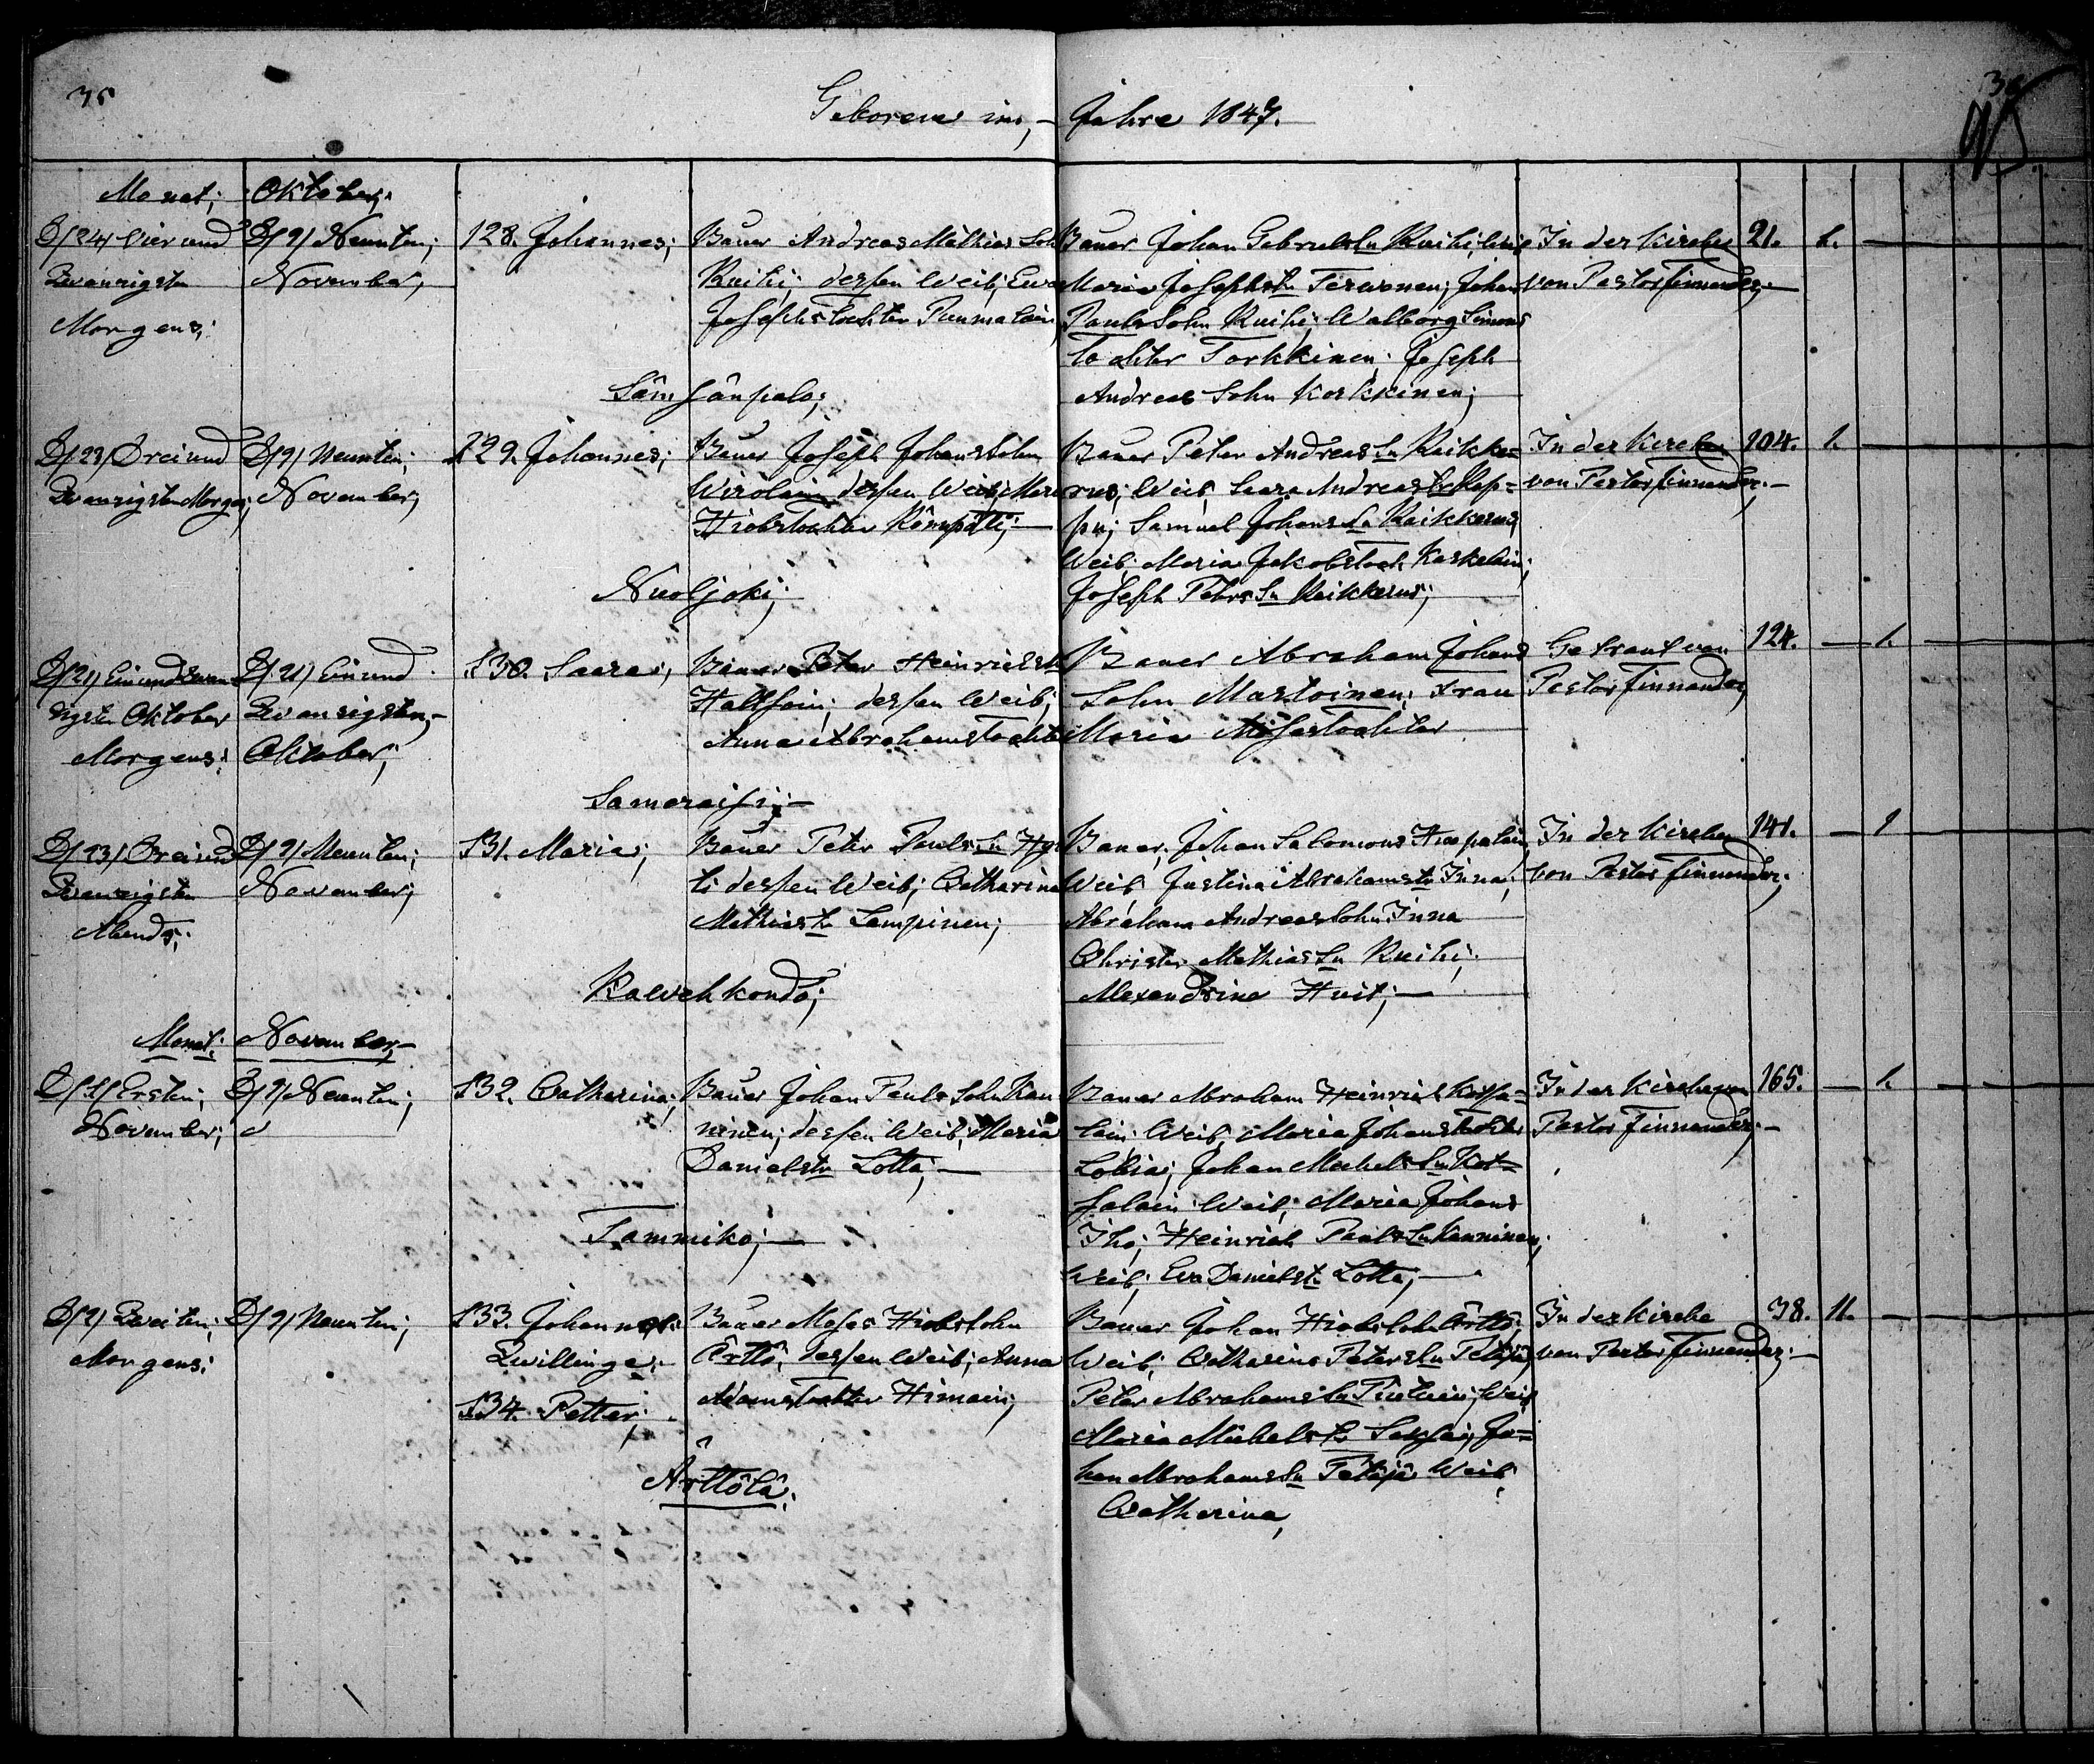 35
36
Geborene im, - Jahre 1847.
Monat; Oktober;
D/24/ Vier und
Zwanzigsten
Morgens;
D/9/ Neunten;
November,
128. Johannes;
Bauer Andreas Mathias Soh
Ruihi; dessen Weib; Ewa
Josephstochter Paumalain
Sämsänpalo;
Bauer Johan Gabriels Sn Ruihi, Weib
Maria Josephstr Terwonen; Johan
Pauls Sohn Ruihi; Walborg Simons
tochter Torkkinen; Joseph
Andreas Sohn Korkkinen;
In der Kirche
von Pastor Finnander;
21. 1. —
D/23/ Drei und
Zwanzigsten Morge;
D/9/ Neunten;
November;
129. Johannes;
Bauer Joseph Johans Sohn
Wirolain dessen Weib; Mari
Hiobstochter Kämpätti; —
Nuoljoki;
Bauer Peter Andreas Sn Raikke=
rus; Weib, Saara Andreas tr Rep=
pu; Samuel Johans Sn Raikkerus
Weib; Maria Jakobstoch Koskelain;
Joseph Peters Sn Raikkerus;
In der Kirchen
von Pastor Finnander. —
104. 1. —
D/21/ Einundzwan
zigsten Oktober
Morgens;
D/21/ Einund
Zwanzigsten, —
Oktober;
130. Saara;
Bauer Peter Heinrichs Sn
Haltsoin; dessen Weib;
Anna Abrahamstochte
Samoraisi; —
Bauer Abraham Johans
Sohn Mustoinen; Frau
Maria Mosestochter
Getrauf von
Pastor Finnander,
124. — 1. —
D/23/ Drei und
Zwanzigsten
Abends;
D/9/ Neunten;
November;
131. Maria;
Bauer Petr Pauls Sn Hyt
ti dessen Weib; Catharina
Mathiastr Lempinen;
Rawehkonda;
Bauer, Johan Salomons Huopalain
Weib Justina Abrahamstr Inna;
Abraham Andreas Sohn Inna
Christer Mathias Sn Ruihi;
Alexandrina Huit; —
In der Kirchen
von Pastor Finnander;
141. — 1
Monat; November, —
D/1/ Ersten;
November;
D/9/ Neunten;
d
132. Catharina;
Bauer Johan Pauls Sohn Kan
ninen; dessen Weib; Maria
Danielstr Lotta; —
Tammiko; —
Bauer Abraham Heinrich Kotsa=
lain; Weib, Maria Johanstochter
Lobia; Johan Michels Sn Kot=
salain Weib; Maria Johans
Iho; Heinrich Pauls Sn Kanninen;
Weib; Eva Danielstr Lotta; —
In der Kirche von
Pastor Finnander; —
165. — 1. —
D/2/ Zweiten;
Morgens;
D/9/ Neunten;
133. Johannes;
Zwillinge;
134. Petter;
Bauer Moses Hiobs Sohn
Ärttö, dessen Weib; Anna
Adamstochter Himain;
Ärttölä;
Bauer Johan Hiobs Sohn Ärttö;
Weib; Catharina Peters Sn Tätäjä;
Peter Abrahams Sn Weib
Maria Michels Tr Ja=
han Abrahams Sn Tätäjä Weib;
Catharina,
In der Kirche
von Pastor Finnander; —
38. 11. —